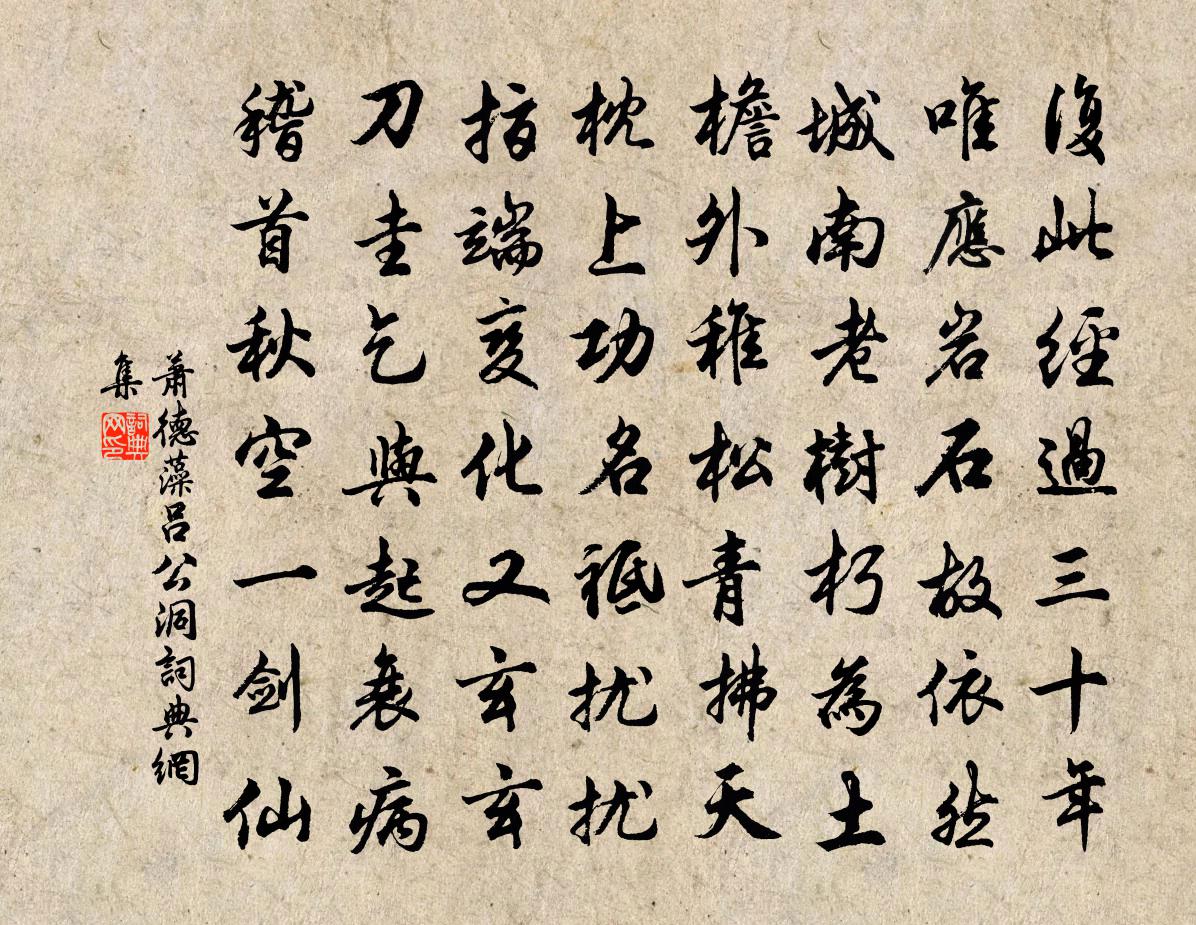 復此經過三十年
唯應岩石故依然
城南老樹朽為土
檐外稚松青拂天
枕上功名祗扰扰
指端变化又玄玄
刀圭乞與起衰病
稽首秋空一剑仙
萧德藻吕公洞詞典網
集
詞典网印